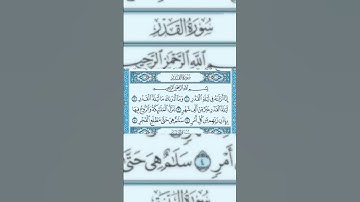 سُورَةُ القَدْرِ
مِ اللَّهِ الرَّحْمَٰنِ الرَّحِيمِ
سُورَةُ القَدْرِ
بِسْمِ اللَّهِ الرَّحْمَٰنِ الرَّحِيمِ
إِنَّا أَنزَلْنَاهُ فِي لَيْلَةِ القَدْرِ ١ وَمَا أَدْرَاكَ مَا لَيْلَةُ القَدْرِ ٢
لَيْلَةُ القَدْرِ خَيْرٌ مِّنْ أَلْفِ شَهْرٍ ٣ تَنَزَّلُ المَلَائِكَةُ وَالرُّوحُ فِيهَا
بِإِذْنِ رَبِّهِم مِّن كُلِّ أَمْرٍ ٤ سَلَامٌ هِيَ حَتَّىٰ مَطْلَعِ الفَجْرِ ٥
أَمْرٍ ٤ سَلَامٌ هِيَ حَتَّىٰ